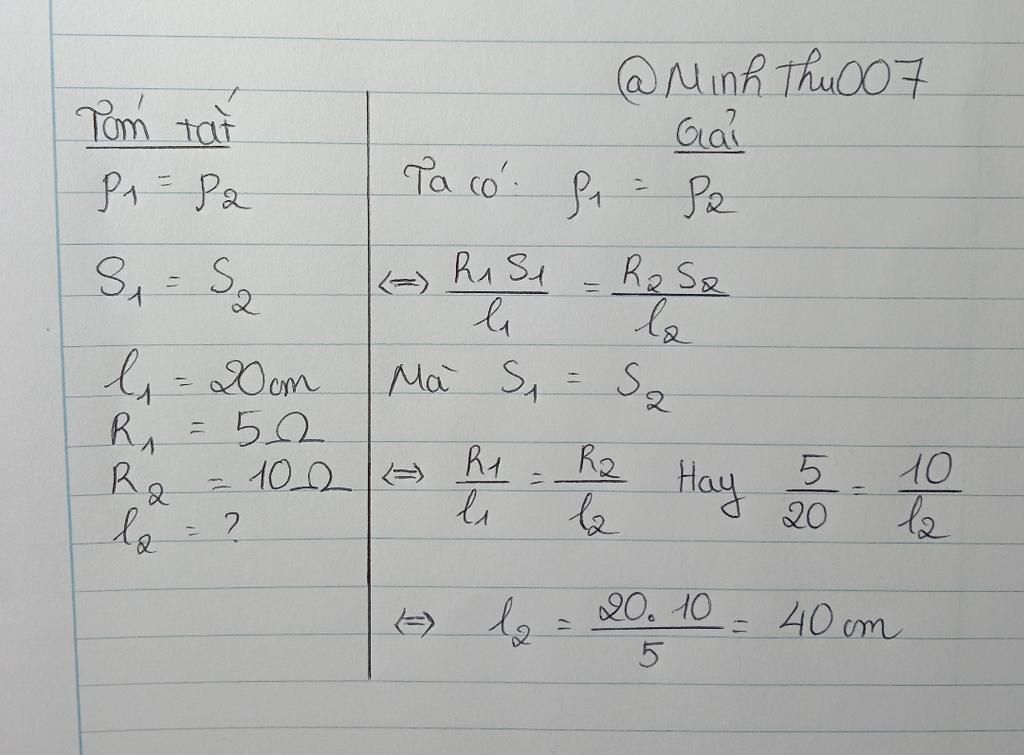 @MinhThu007
Tóm tắt
ρ1 = ρ2
S1 = S2
l1 = 20cm
R1 = 5Ω
R2 = 10Ω
l2 = ?
Giải
Ta có: ρ1 = ρ2
<=> R1 S1 / l1 = R2 S2 / l2
Mà S1 = S2
<=> R1 / l1 = R2 / l2 Hay 5 / 20 = 10 / l2
<=> l2 = 20. 10 / 5 = 40 cm